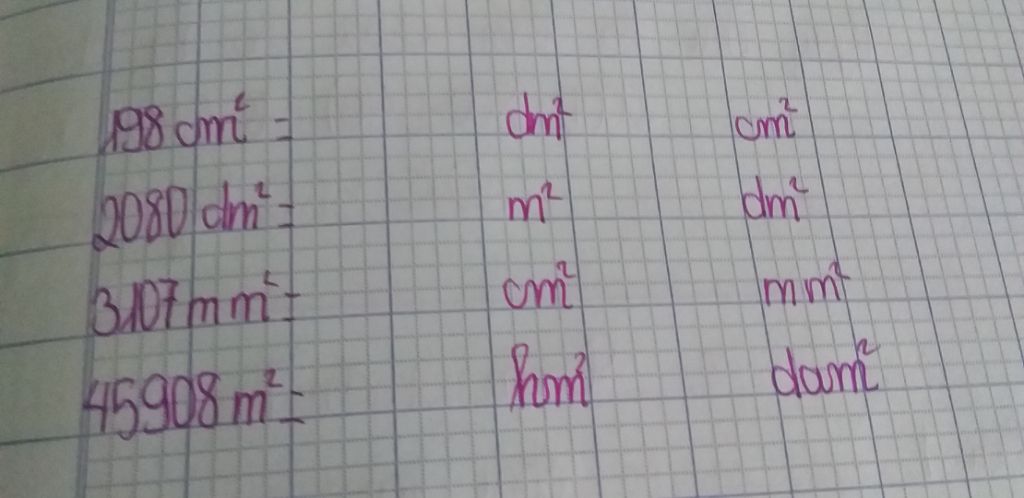 198 cm² = dm² cm²
2080 dm² = m² dm²
3107 mm² = cm² mm²
45908 m² = hm² dam²